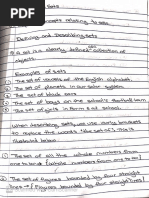 Sets
concepts relating to sets
Defining and Describing Sets
A set is a clearly defined collection of
objects.
Examples of sets
The set of vowels of the English alphabet.
The set of planets in our solar system.
The set of black cars
The set of boys on the school's football team
The set of girls form
When describing sets we use curly brackets
to replace the words 'the set of'. This is
illustrated below
The set of all the whole numbers from
one to ten = {whole numbers from one to ten}
The set of figures bounded by four straight
lines → {Figures bounded by four straight lines}